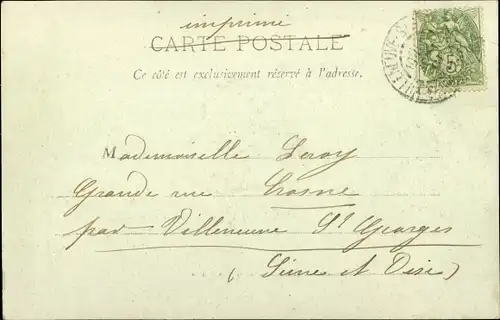 imprimé
CARTE POSTALE
Ce côté est exclusivement réservé à l'adresse.
Mademoiselle Leroy
Grande rue Crosne
par Villeneuve St Georges
(Seine et Oise)
5